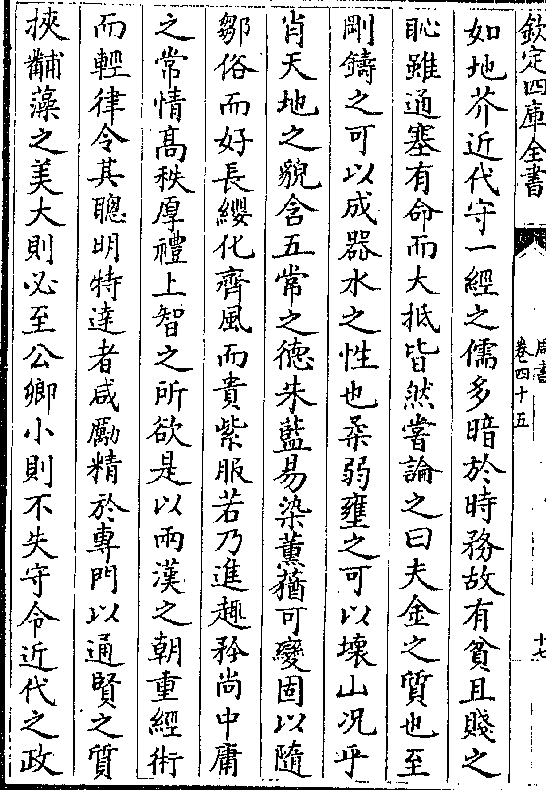 欽定四庫全書
周書
卷四十五
十七
如地芥近代守一經之儒多暗於時務故有貧且賤之
恥雖通塞有命而大抵皆然嘗論之曰夫金之質也至
剛鑄之可以成器水之性也柔弱壅之可以壞山况乎
肖天地之貌含五常之德朱藍易染薰蕕可變固以隨
鄒俗而好長纓化齊風而貴紫服若乃進趣矜尚中庸
之常情髙秩厚禮上智之所欲是以兩漢之朝重經術
而輕律令其聰明特達者咸勵精於專門以通賢之質
挾黼藻之美大則必至公卿小則不失守令近代之政